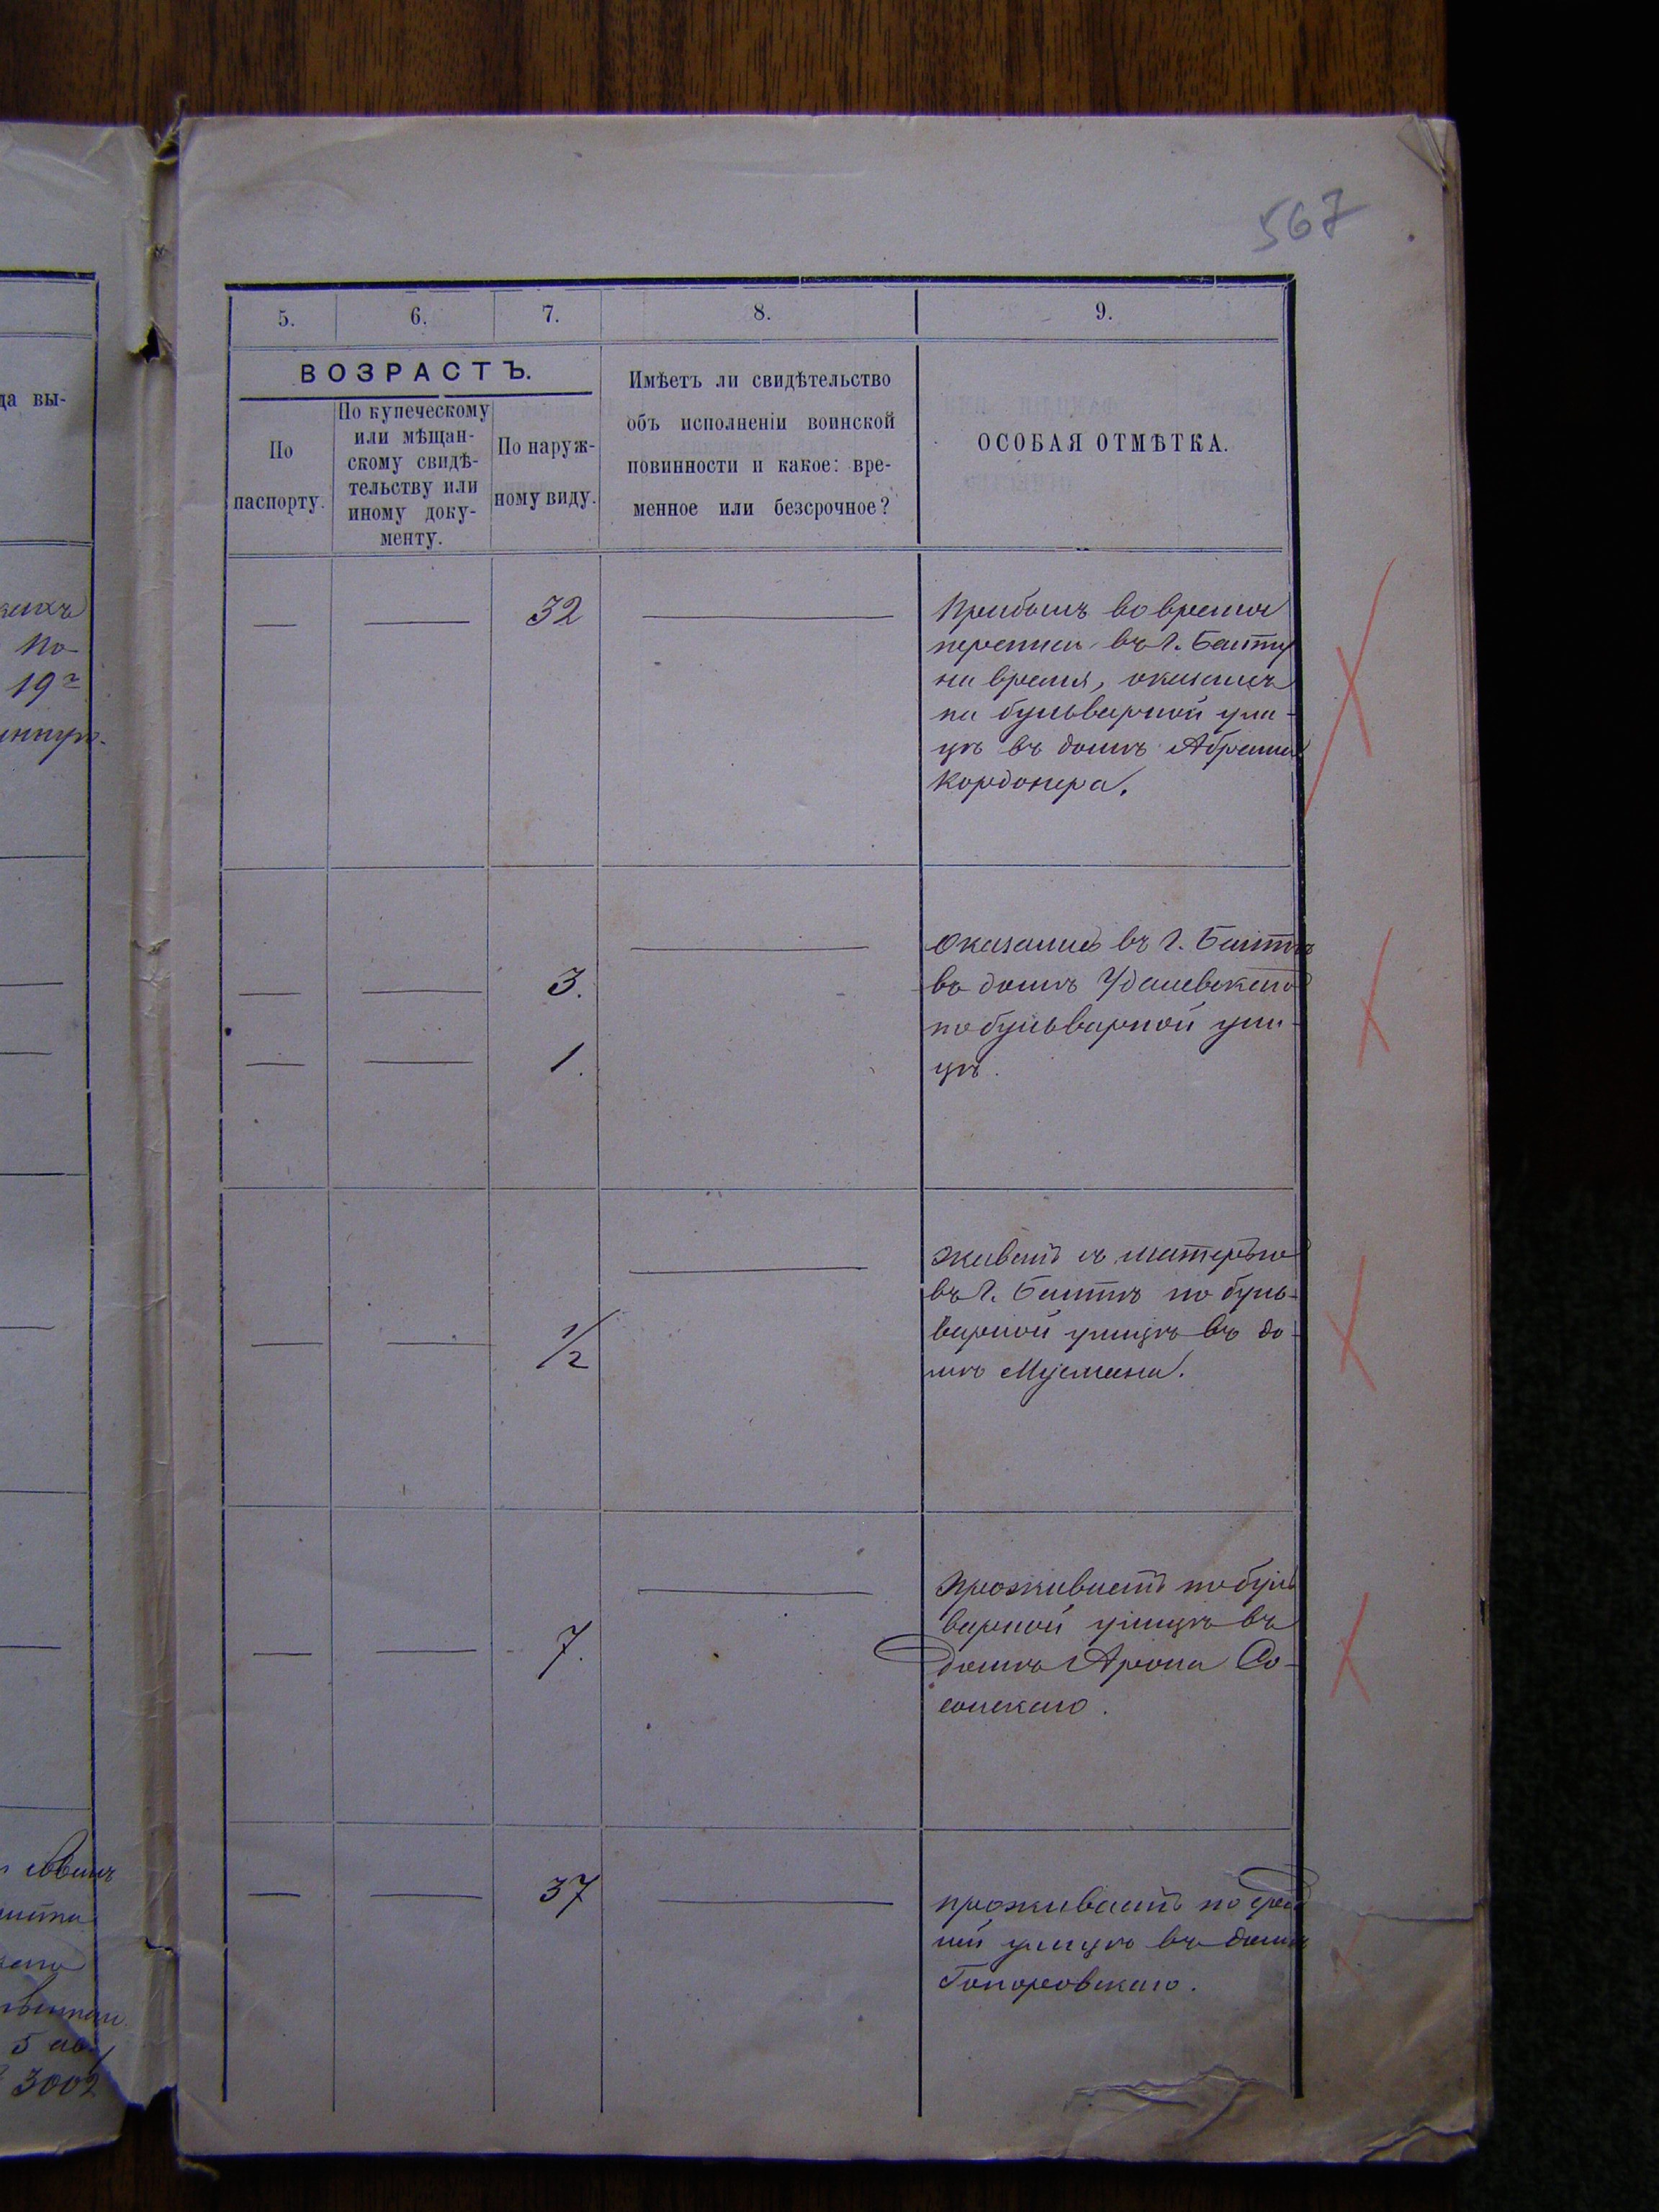 567
5. 6. 7. 8. 9.
ВОЗРАСТЪ.
По
паспорту.
По купеческому
или мѣщан-
скому свидѣ-
тельству или
иному доку-
менту.
По наруж-
ному виду.
Имѣетъ ли свидѣтельство
объ исполненіи воинской
повинности и какое: вре-
менное или безсрочное?
ОСОБАЯ ОТМѢТКА.
да вы-
19
— — 32 —
Прибылъ во время
переписи въ г. Балту
на время, оказался
на бульварной ули-
цѣ въ домѣ Абрама
Кордонера.
—
— — 3.
— — 1.
Оказались въ г. Балтѣ
въ домѣ Удалевскаго
по бульварной ули-
цѣ.
—
— — 1/2
живетъ съ матерью
въ г. Балтѣ по буль-
варной улицѣ въ до-
мѣ
—
— — 7.
проживаетъ по буль
варной улицѣ въ
домѣ Арона Со-
сонскаго.
— — 37 —
проживаетъ по
ней улицѣ въ домѣ
Топоровскаго.
5
3002